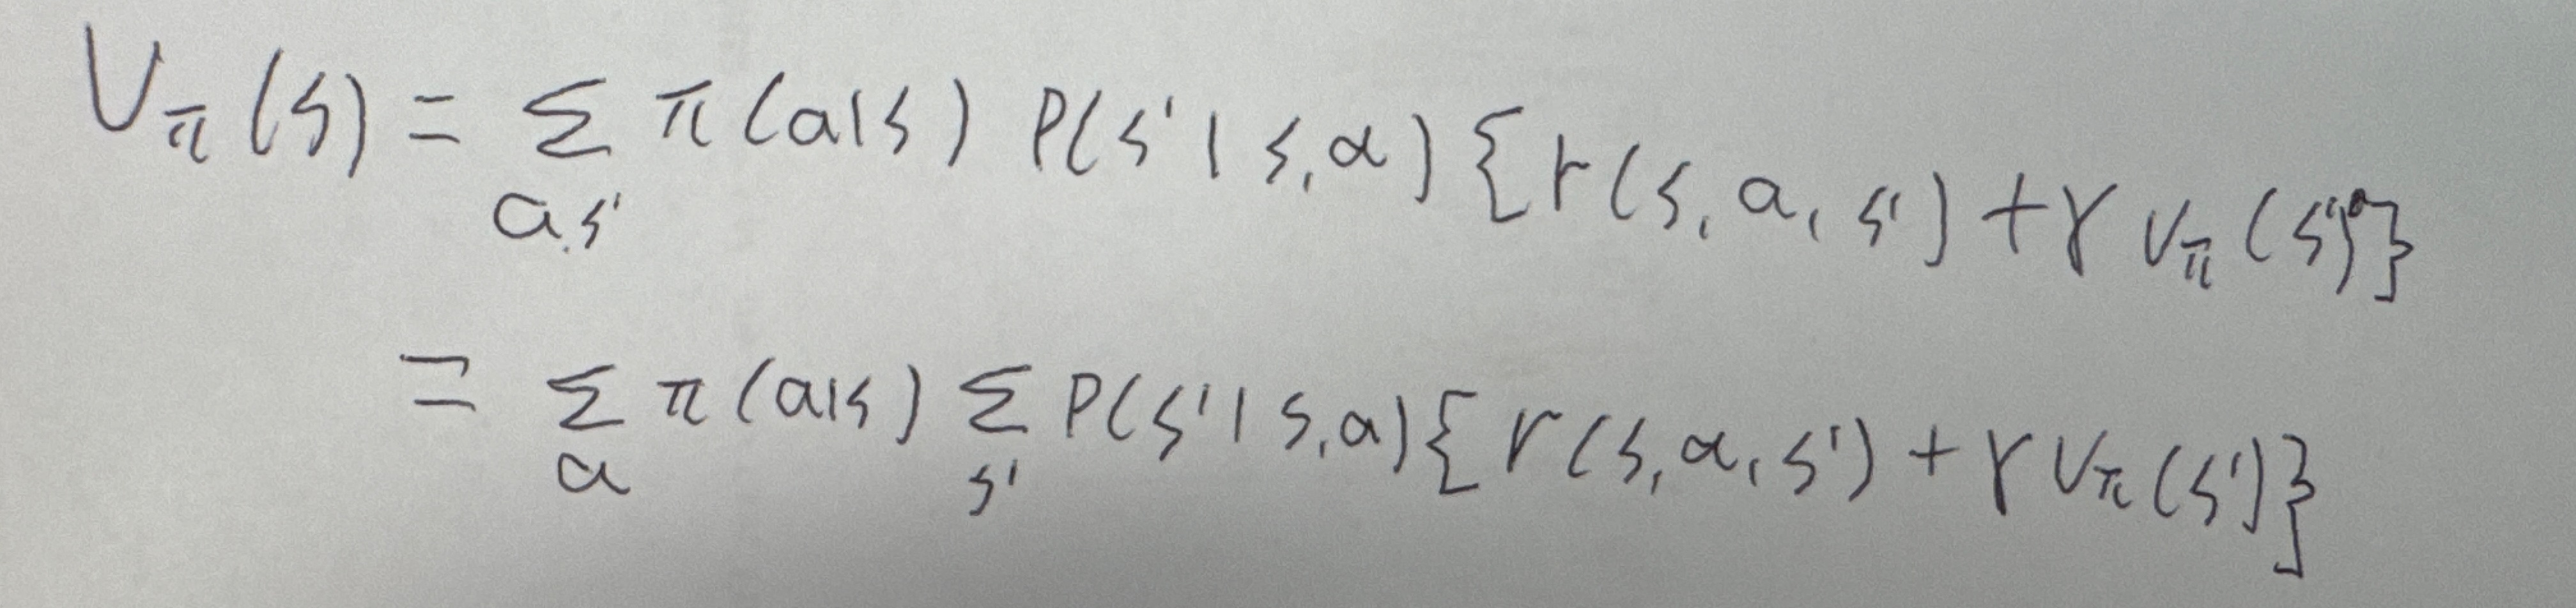 V_π(s) = Σ_{a,s'} π(a|s) P(s'|s,a) {r(s,a,s') + γ V_π(s')}
= Σ_a π(a|s) Σ_{s'} P(s'|s,a) {r(s,a,s') + γ V_π(s')}